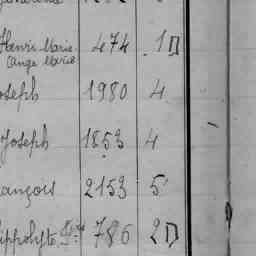 Henri Marie 474 1 D
Ange Marie
oseph 1980 4
Joseph 1853 4
ançois 2153 5
ippolyte 786 2 D